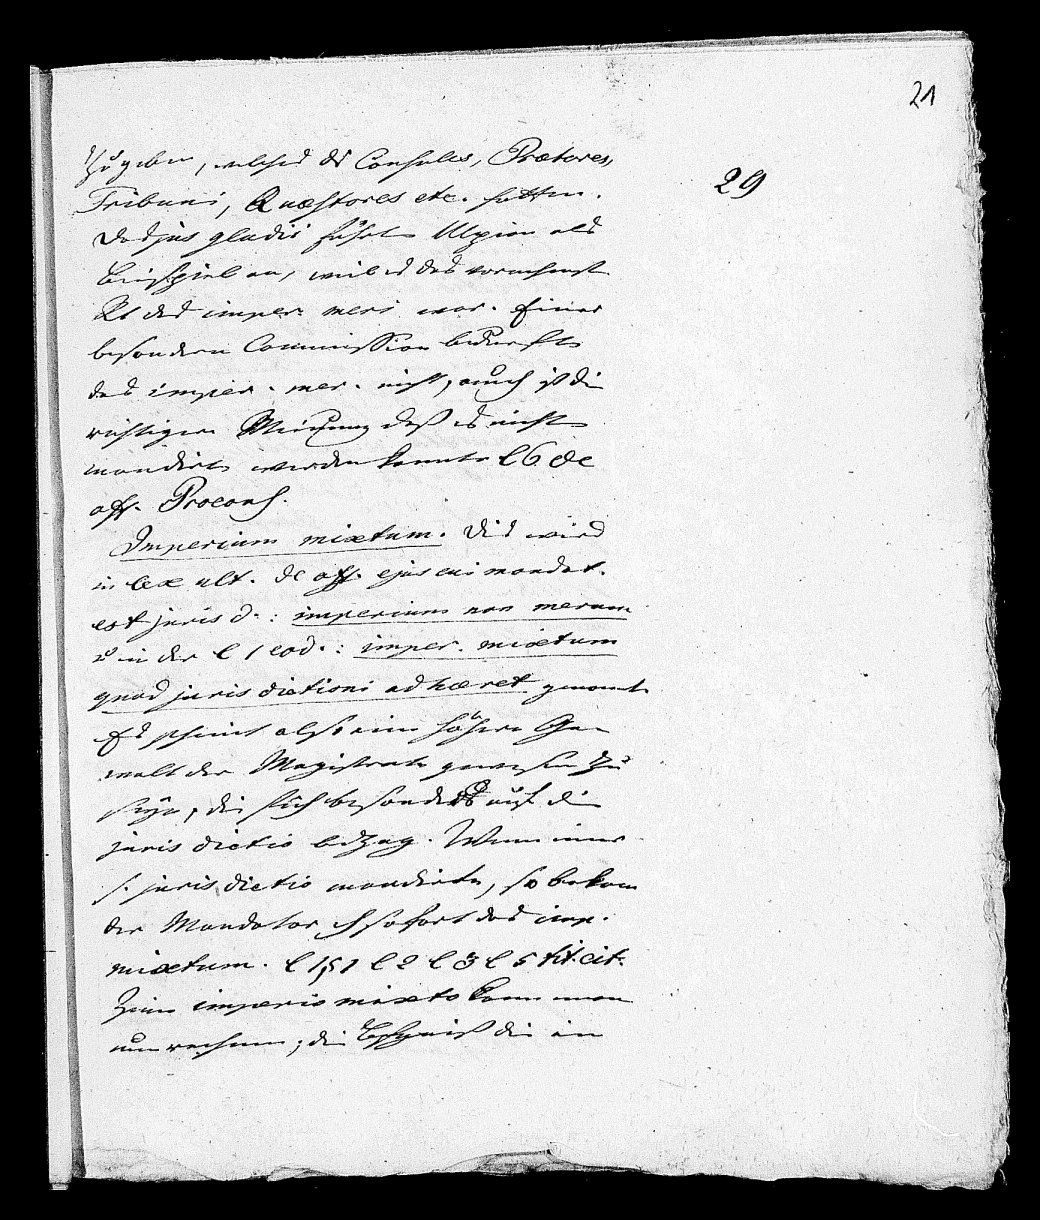 21
29
zu geben, welches die Consules, Prætores,
Tribuni, Quæstores etc. hatten.
Das jus gladii führt Ulpian als
Beispiel an, weil es das vornehmste
St des imper. meri war. Einer
besondern Commission bedurfte
das imper. mer. nicht, auch ist die
richtigere Meinung daß es nicht
mandirt werden konnte l 6 de
off. Procons.
Imperium mixtum. Dies wird
in lex ult. de off. ejus cui mandat.
est jurisd.: imperium non merum
u in der l 1 eod.: imper. mixtum
quod jurisdictioni adhæret genannt
Es scheint also eine höhere Ge
walt der Magistrate gewesen zu
seyn, die sich besonders auf die
jurisdictio bezog. Wenn einer
s. jurisdictio mandirte, so bekam
der Mandatar sofort das imp.
mixtum. l 1 § 1 l 2 l 3 l 5 tit. cit.
Zum imperio mixto kann man
nun rechnen; die Befugniß die in